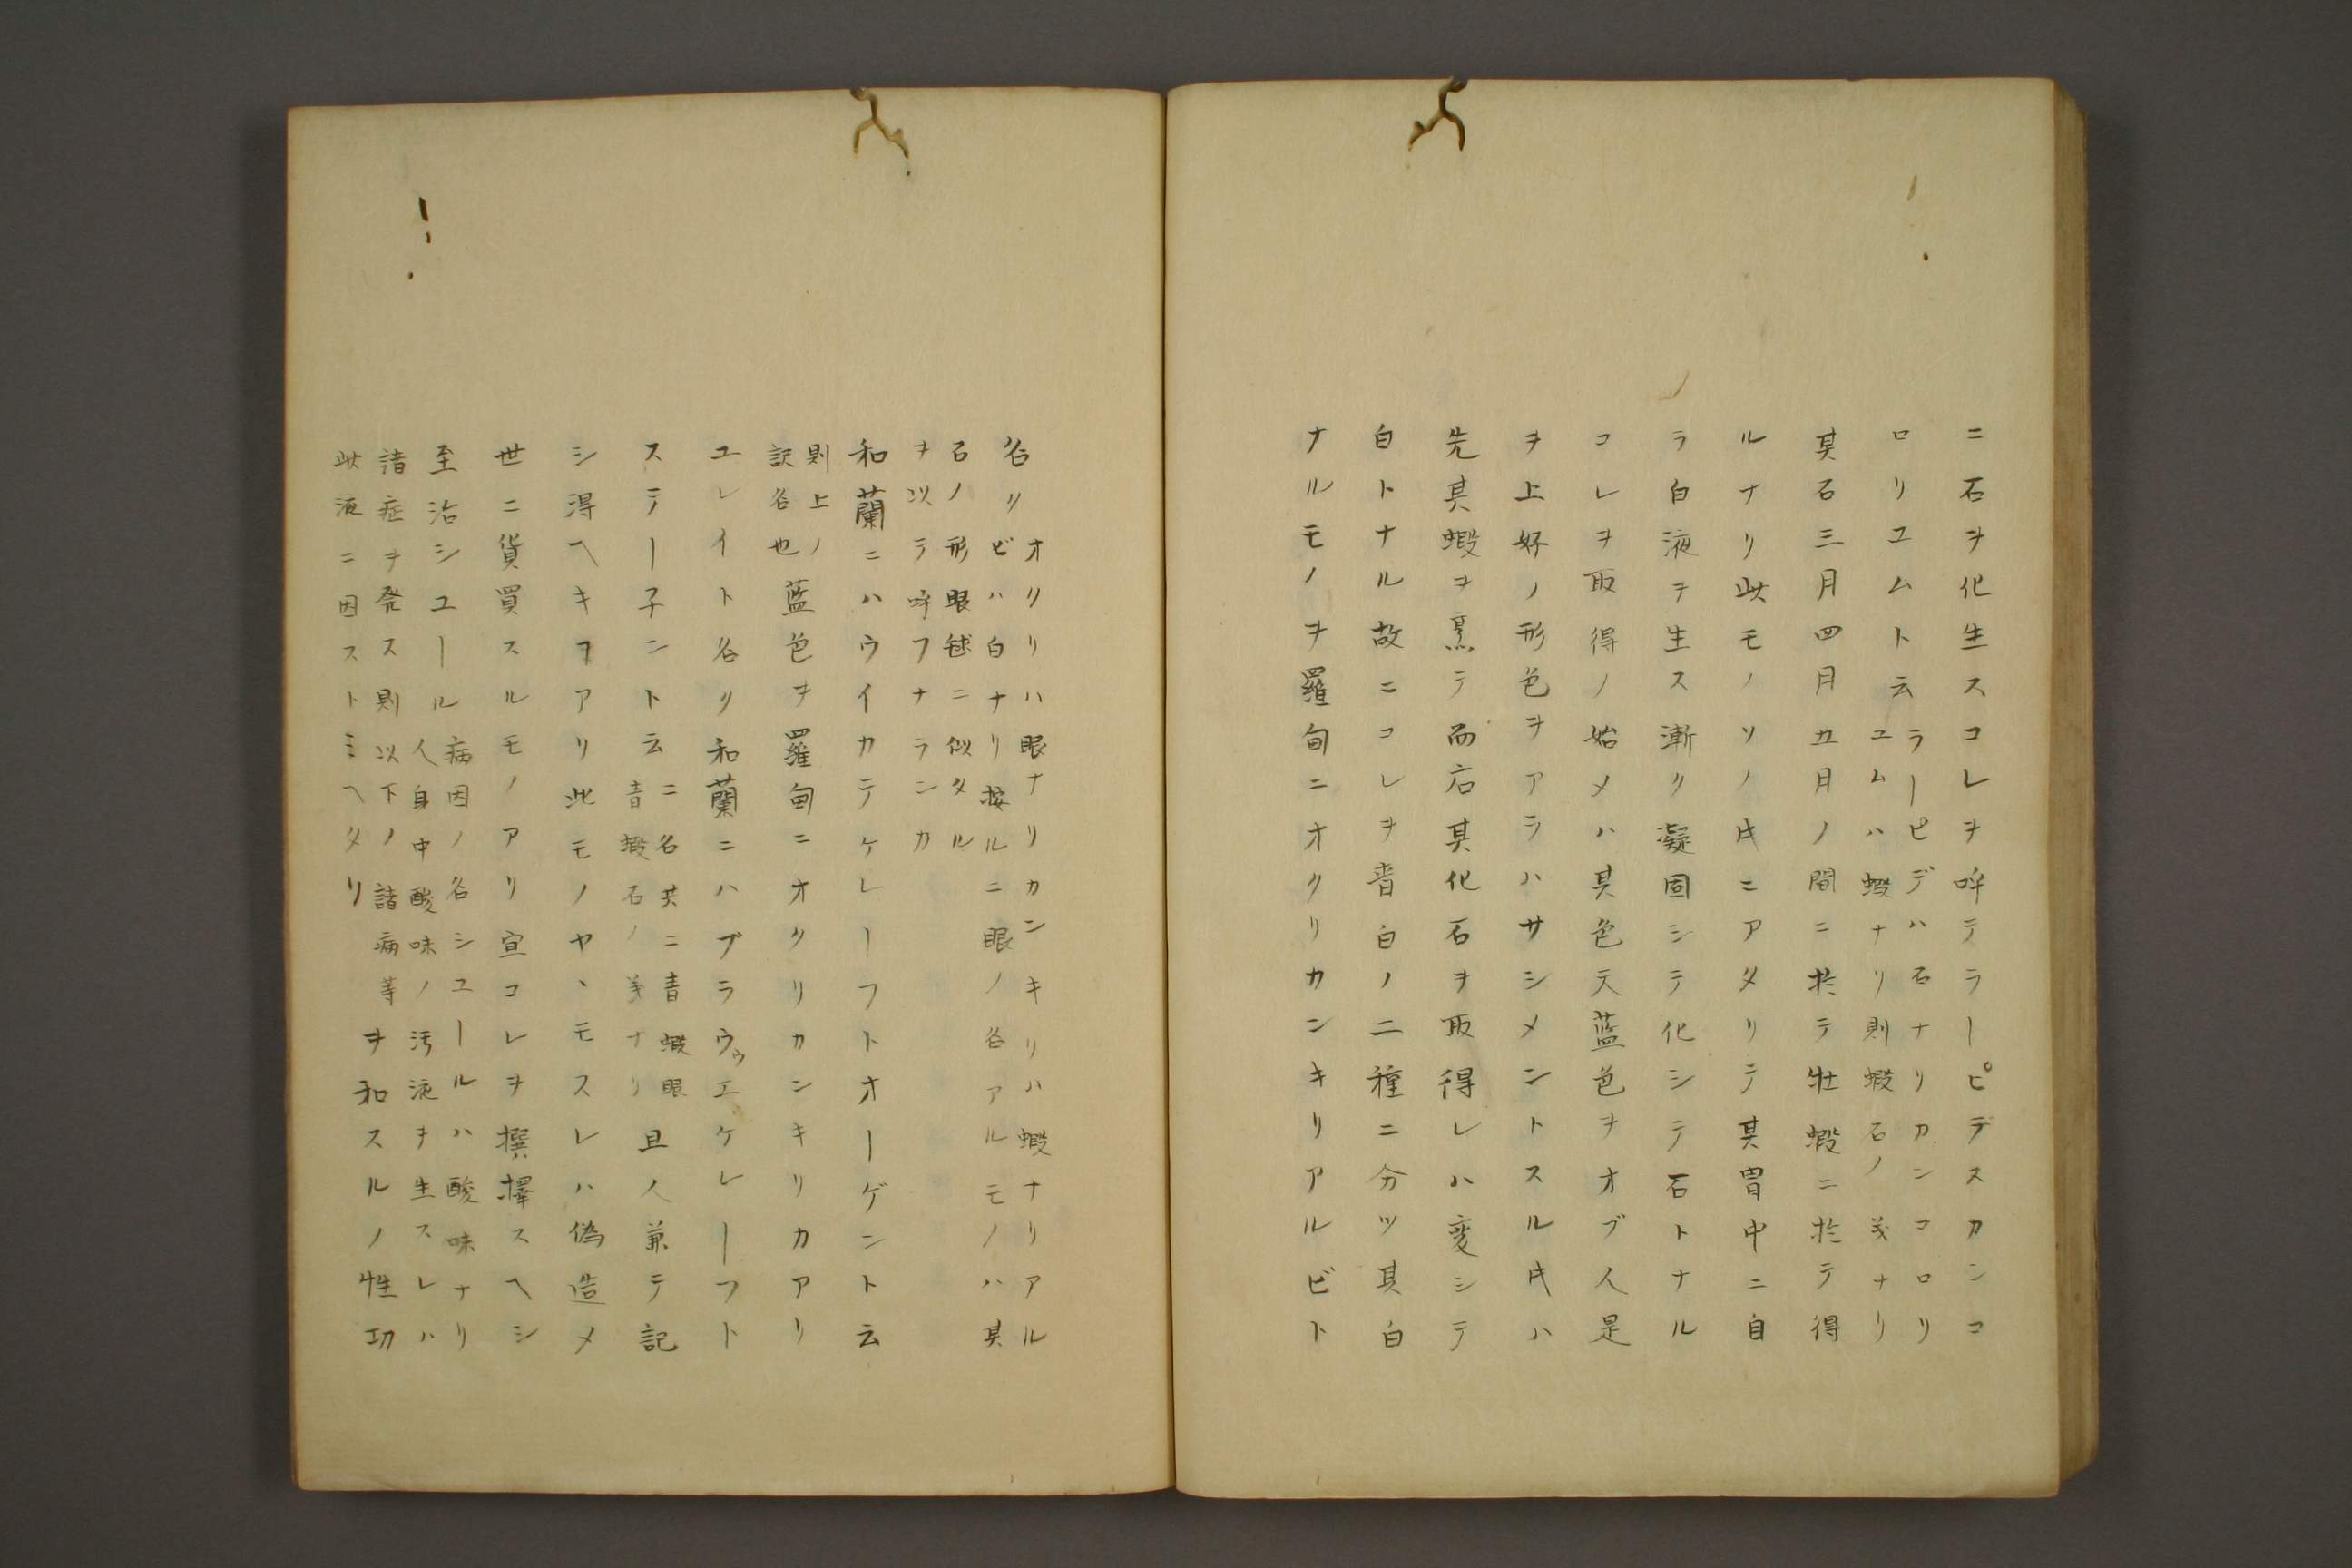 ニ石ヲ化生スコレヲ呼テラーピデスカンコ
ロリユムト云
ラーピデハ石ナリカンコロリ
ユムハ蝦ナリ則蝦石ノ義ナリ
其石三月四月五月ノ間ニ於テ牡蝦ニ於テ得
ルナリ此モノソノ𪜈ニアタリテ其胃中ニ自
ラ白液ヲ生ス漸ク凝固シテ化シテ石トナル
コレヲ取得ノ始メハ其色天藍色ヲオブ人是
ヲ上好ノ形色ヲアラハサシメントスル𪜈ハ
先其蝦ヲ烹テ而后其化石ヲ取得レハ変シテ
白トナル故ニコレヲ青白ノ二種ニ分ツ其白
ナルモノヲ羅甸ニオクリカンキリアルビト
名リ
オクリハ眼ナリカンキリハ蝦ナリアル
ビハ白ナリ按ルニ眼ノ名アルモノハ其
石ノ形眼毬ニ似タル
ヲ以テ呼フナランカ
和蘭ニハウイカテケレーフトオーゲント云
則上ノ
訳名也
藍色ヲ羅甸ニオクリカンキリカアリ
ユレイト名ク和蘭ニハブラウゥエケレーフト
ステー子ント云
ニ名共ニ青蝦眼
青蝦石ノ義ナリ
且人兼テ記
シ得ヘキヿアリ此モノヤヽモスレハ偽造メ
世ニ貨買スルモノアリ宜コレヲ撰擇スヘシ
至治シユール
病因ノ名シユールハ酸味ナリ
人身中酸味ノ汚液ヲ生スレハ
諸症ヲ発ス則以下ノ諸病等
此液ニ因ストミヘタリ
ヲ和スルノ性功